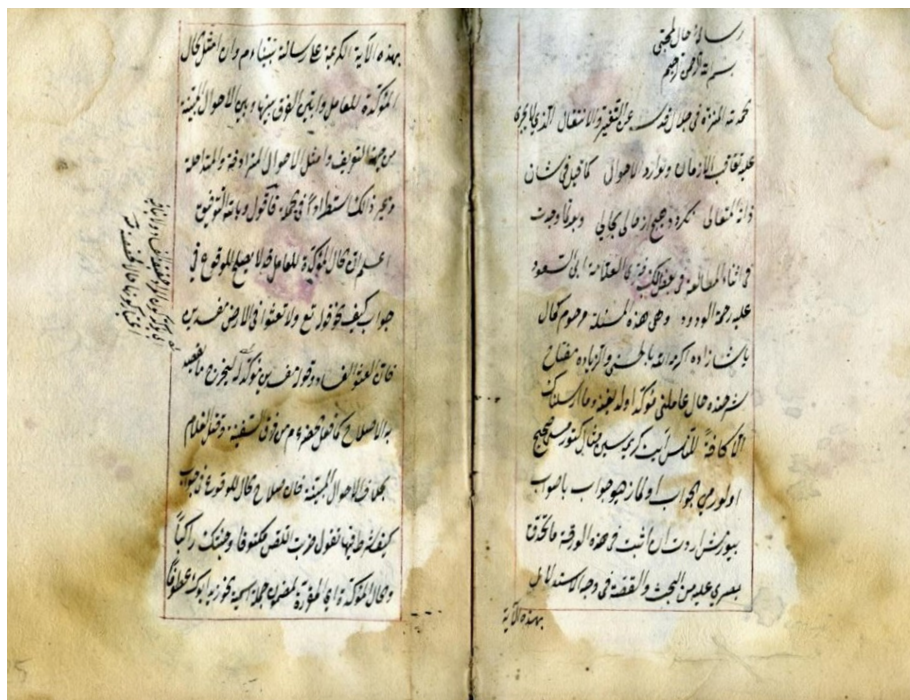 رسالة حال المجتبى
بسم الله الرحمن الرحيم
نحمد لله المنزه في جلال قدسه عن التغير والانتقال الذي لا يجري
عليه تعاقب الازمان وتوارد الاحوال كما قيل في شان
ذاته المتعالي نكردد هيچ از حالي بحالي وبعد لما وجدت
في اثناء المطالعة في بعض الكتب فتوى العلامة ابي السعود
عليه رحمة الودود وهي هذه المسئلة مرحوم كمال
پاشا زاده اكرمه الله بالحسنى والزيادة مفتاح
شرحنده حال عاملني مؤكد اولديغنه وما ارسلناك
الا كافة للناس آيت كريمه سين مثال كتورمش صحيح
اولورمي الجواب اولماز هو جواب باصواب
بيورمش اردت ان اثبت في هذه الورقة ما تحدق
بصري عليه من البحث والقصة في وجه الاستدلال
بهذه الآية
بهذه الآية الكريمة على رسالة نبينا عم وان امثل الحال
المؤكدة للعامل وابين الفرق بينها وبين الاحوال المبينة
من جهة التعريف وامثل الاحوال المترادفة والمتداخلة
وغير ذالك استطرادا في الجملة فاقول وبالله التوفيق
اعلم ان الحال المؤكدة للعامل قد لا يصلح للوقوع في
جواب كيف نحو قوله تع ولا تعثوا في الارض مفسدين
فان العثو الفساد وقوله مفسدين مؤكد له ليخرج ما يقصد
به الاصلاح كما فعل خضر عم من خرق السفينة وقتل الغلام
بخلاف الاحوال المبينة فان صلاح الحال للوقوع في جواب
كيف شرط فيها تقول ضربت اللص مكتوفا وجئتك راكبا
والحال المؤكدة اي المقررة لمضمون جملة اسمية نحو زيد ابوك عطوفا